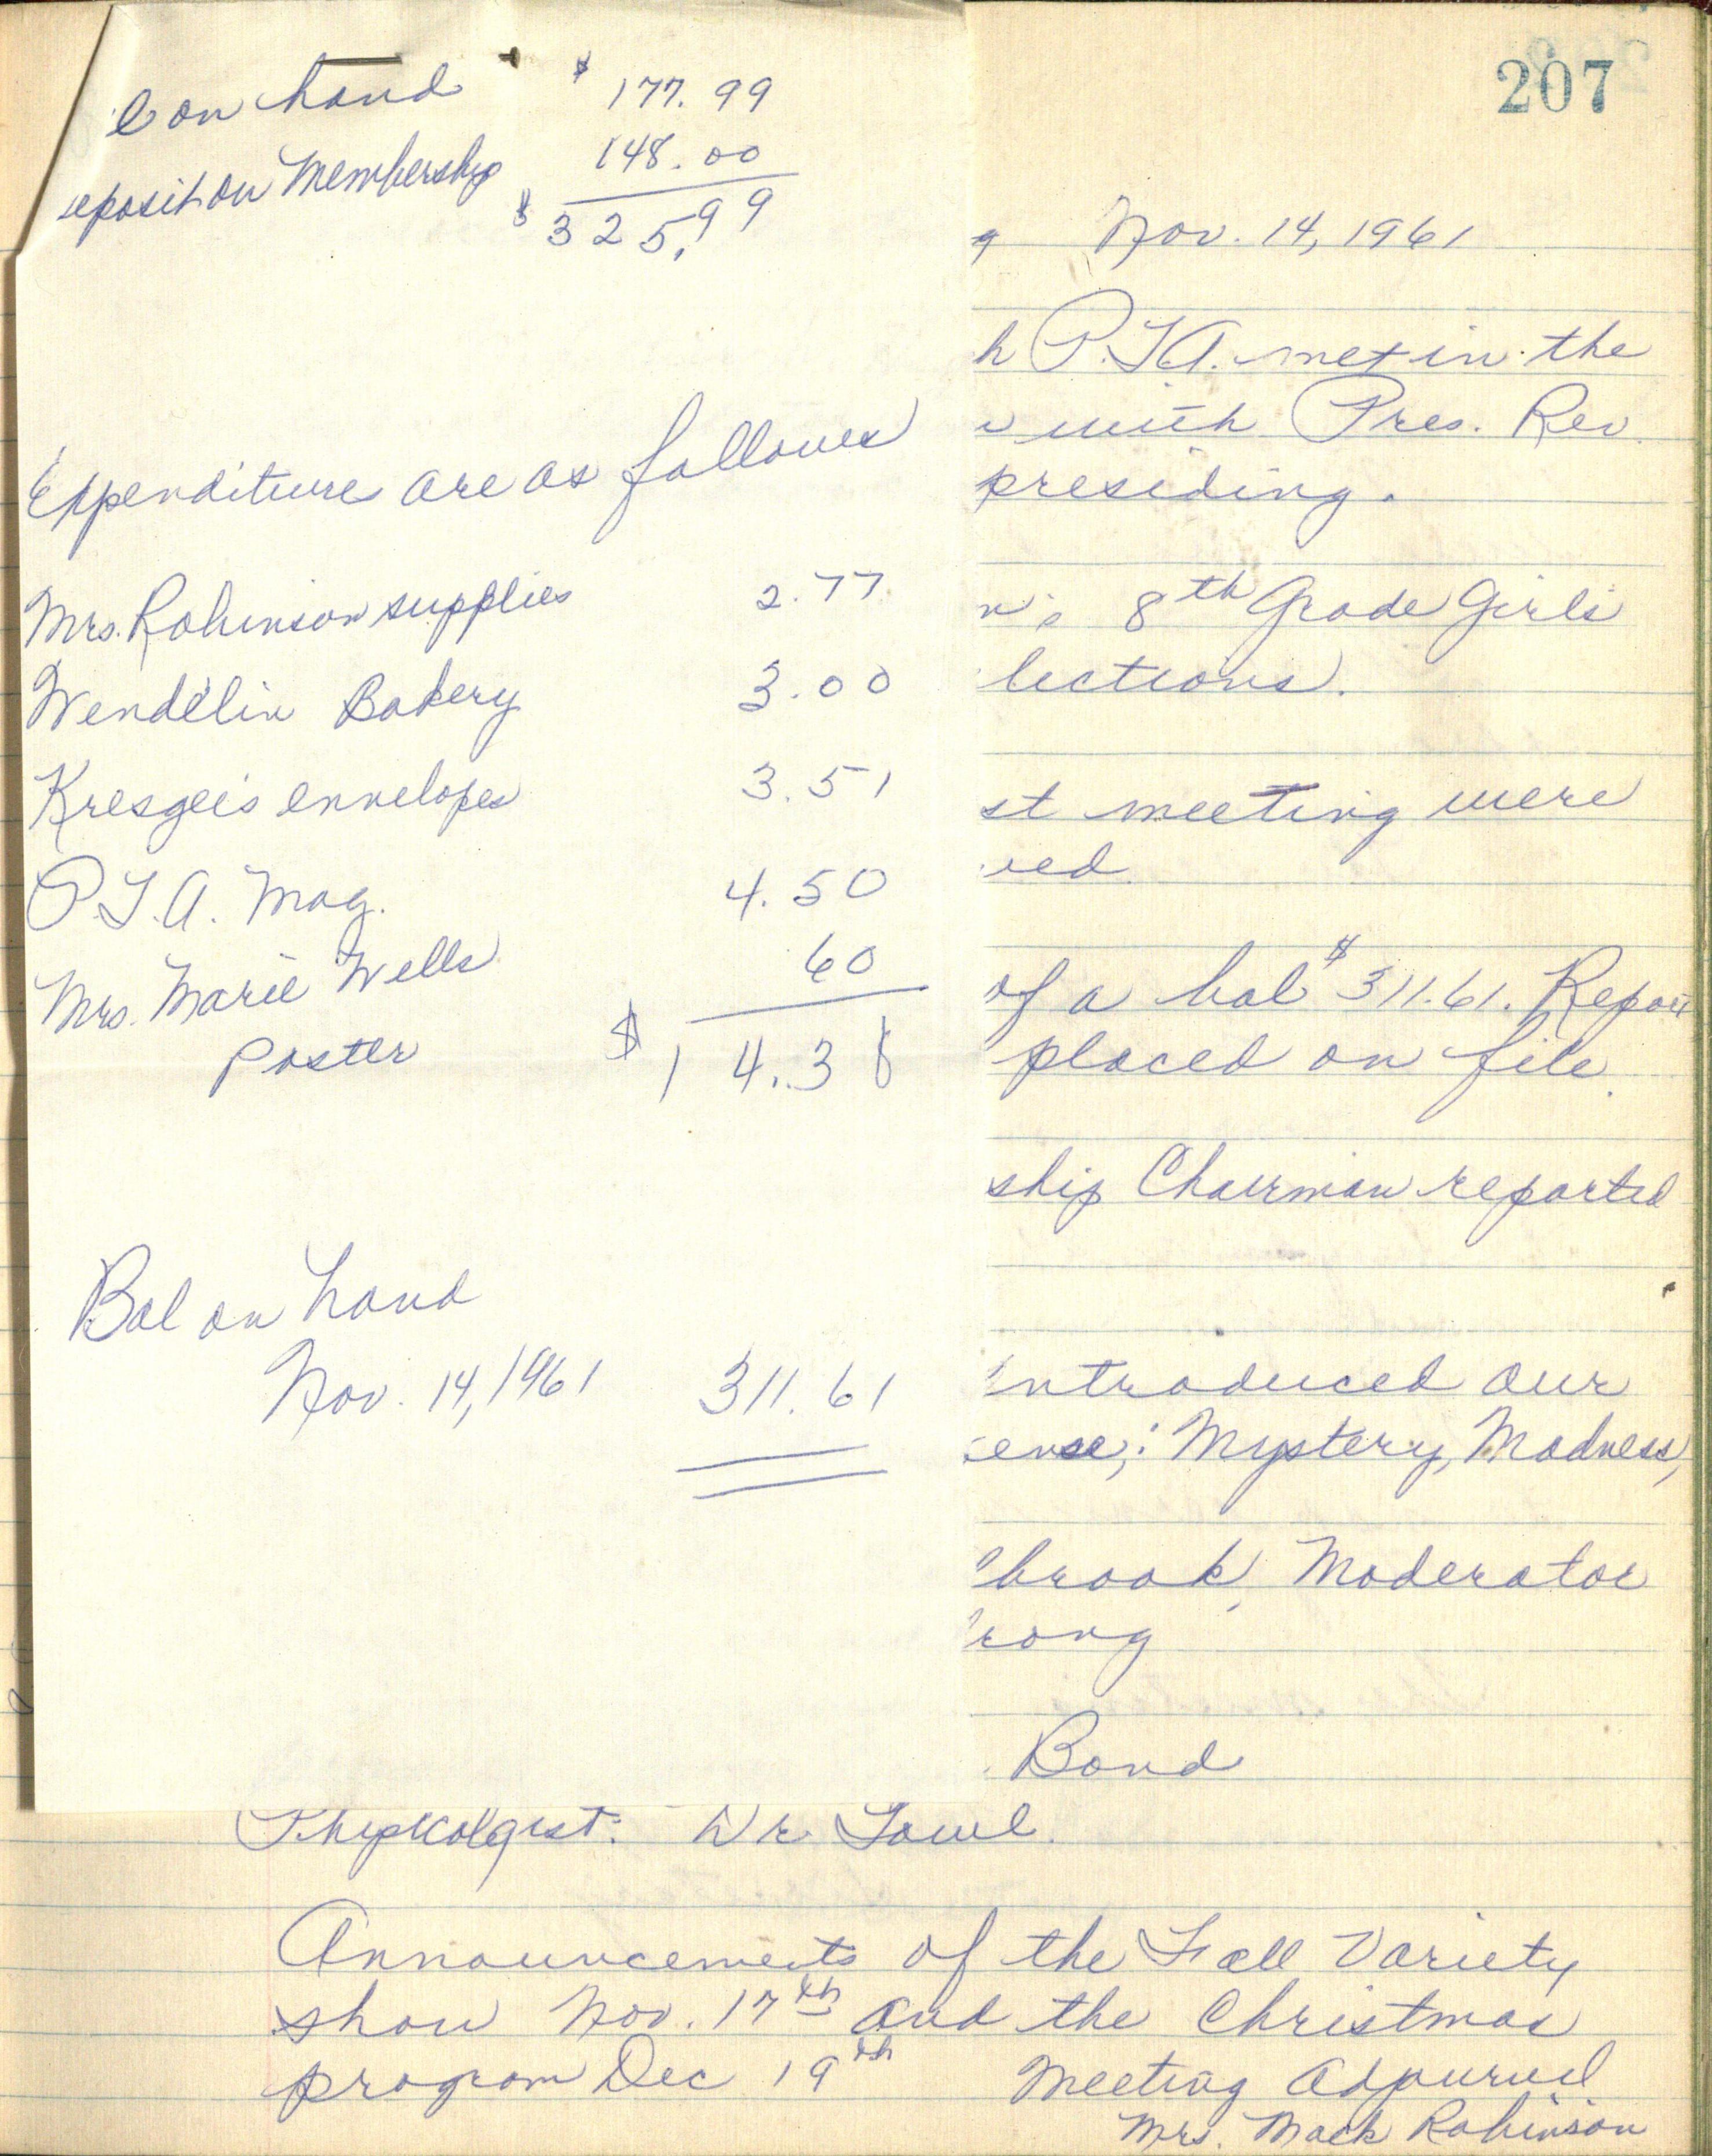 207
on hand $ 177.99
eposit on Membership 148.00
$ 325.99
Expenditure are as follows
Mrs. Robinson supplies 2.77
Wendelin Bakery 3.00
Kresge's envelopes 3.51
P.T.A. Mag. 4.50
Mrs. Marie Wells 60
Poster $ 14.38
Bal on hand
Nov. 14, 1961 311.61
g Nov. 14, 1961
h P.T.A. met in the
with Pres. Rev.
presiding.
8th Grade Girls
lections.
st meeting were
ved
of a bal $311.61. Report
placed on file.
ship Chairman reported
introduced our
ense; Mystery, Madness,
brook, Moderator
rong
Bond
Dr
Announcements of the Fall Variety
show Nov. 17th and the Christmas
program Dec 19th Meeting adjourned
Mrs. Mack Robinson